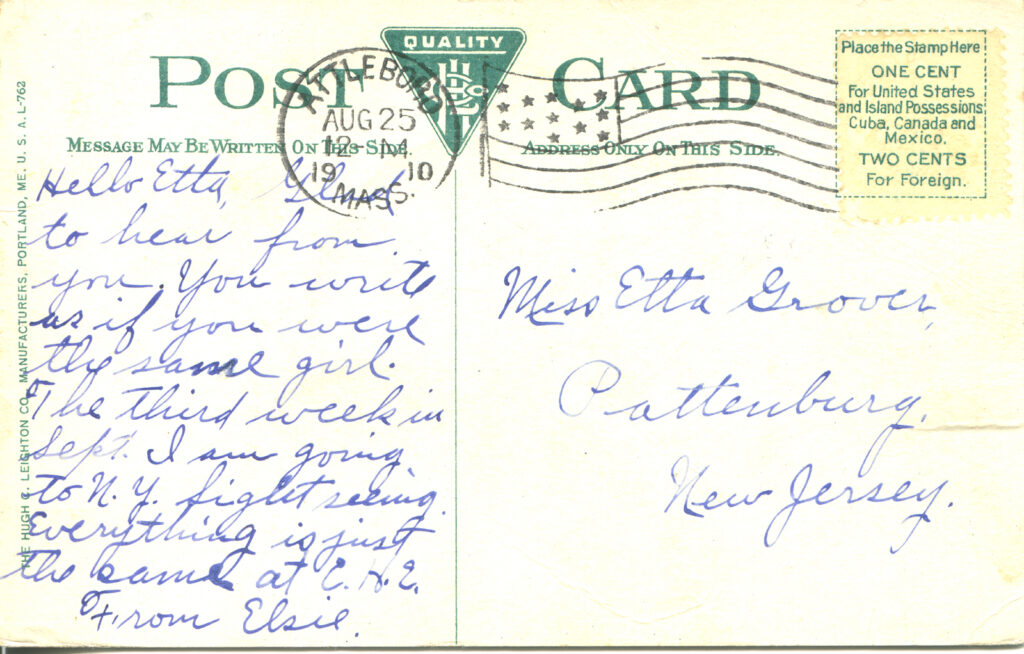 QUALITY
POST CARD
ATTLEBORO
AUG 25
12 M
19 10
MASS.
Place the Stamp Here
ONE CENT
For United States
and Island Possessions
Cuba, Canada and
Mexico.
TWO CENTS
For Foreign.
MESSAGE MAY BE WRITTEN ON THIS SIDE.
ADDRESS ONLY ON THIS SIDE.
THE HUGH C. LEIGHTON CO., MANUFACTURERS, PORTLAND, ME. U. S. A. L-762
Hello Etta, Glad
to hear from
you. You write
as if you were
the same girl.
The third week in
Sept. I am going
to N.Y. sightseeing.
Everything is just
the same at E.H.E.
From Elsie.
Miss Etta Grover,
Pattenburg,
New Jersey.